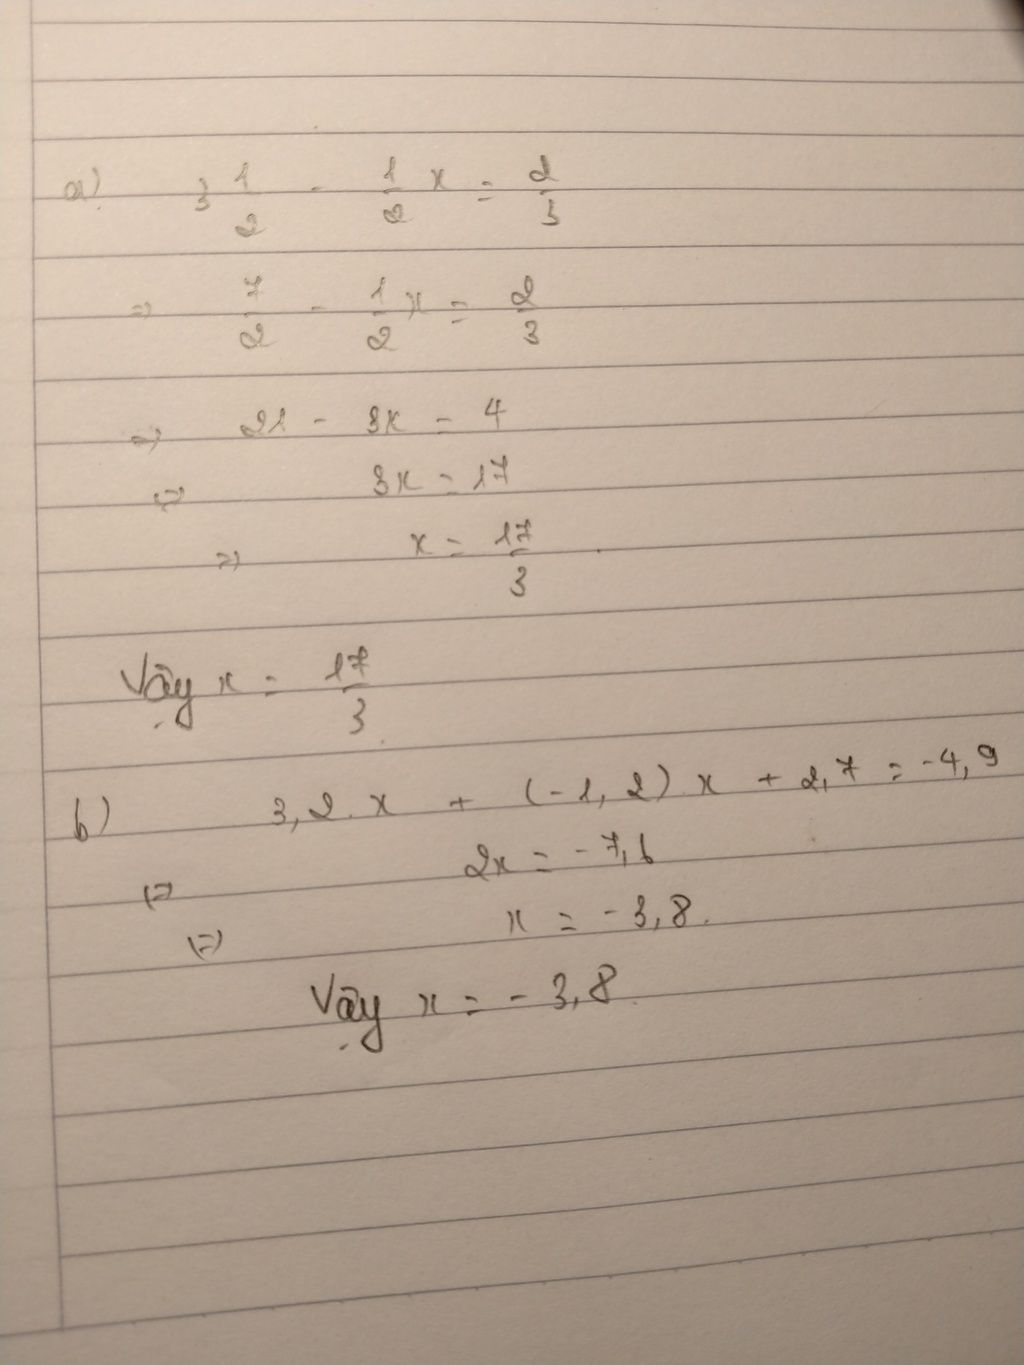 a) 3 1/2 - 1/2 x = 2/3
=> 7/2 - 1/2 x = 2/3
=> 21 - 3x = 4
(=) 3x = 17
=> x = 17/3
Vậy x = 17/3
b) 3,2.x + (-1,2).x + 2,7 = -4,9
(=) 2x = -7,6
(=) x = -3,8.
Vậy x = -3,8.